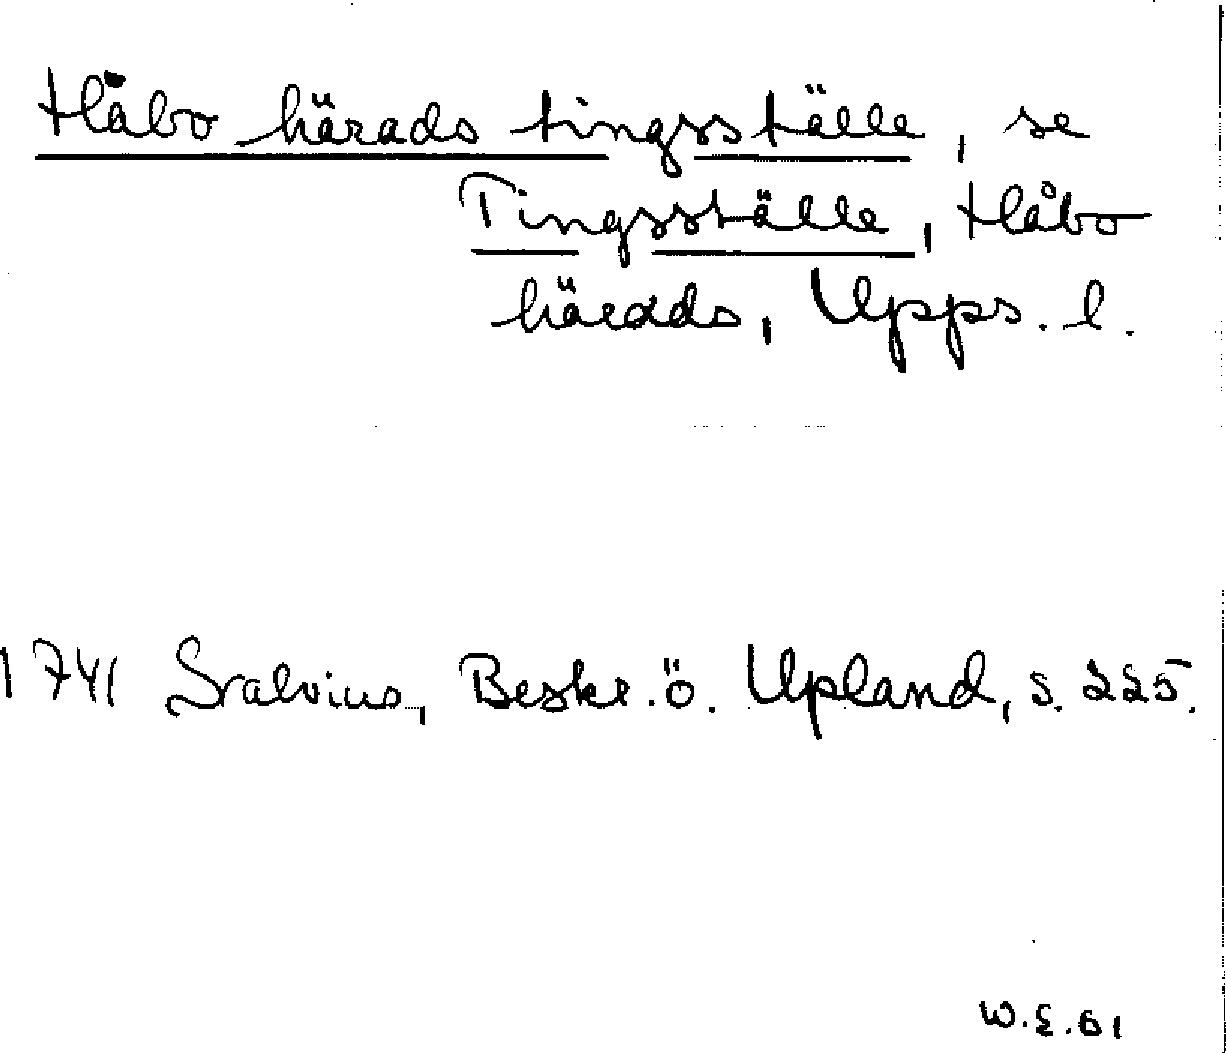 Håbo härads tingsställe, se
Tingsställe, Håbo
härads, Upps. l.
1741 Salvius, Beskr. ö. Upland, s. 225.
W.E.61